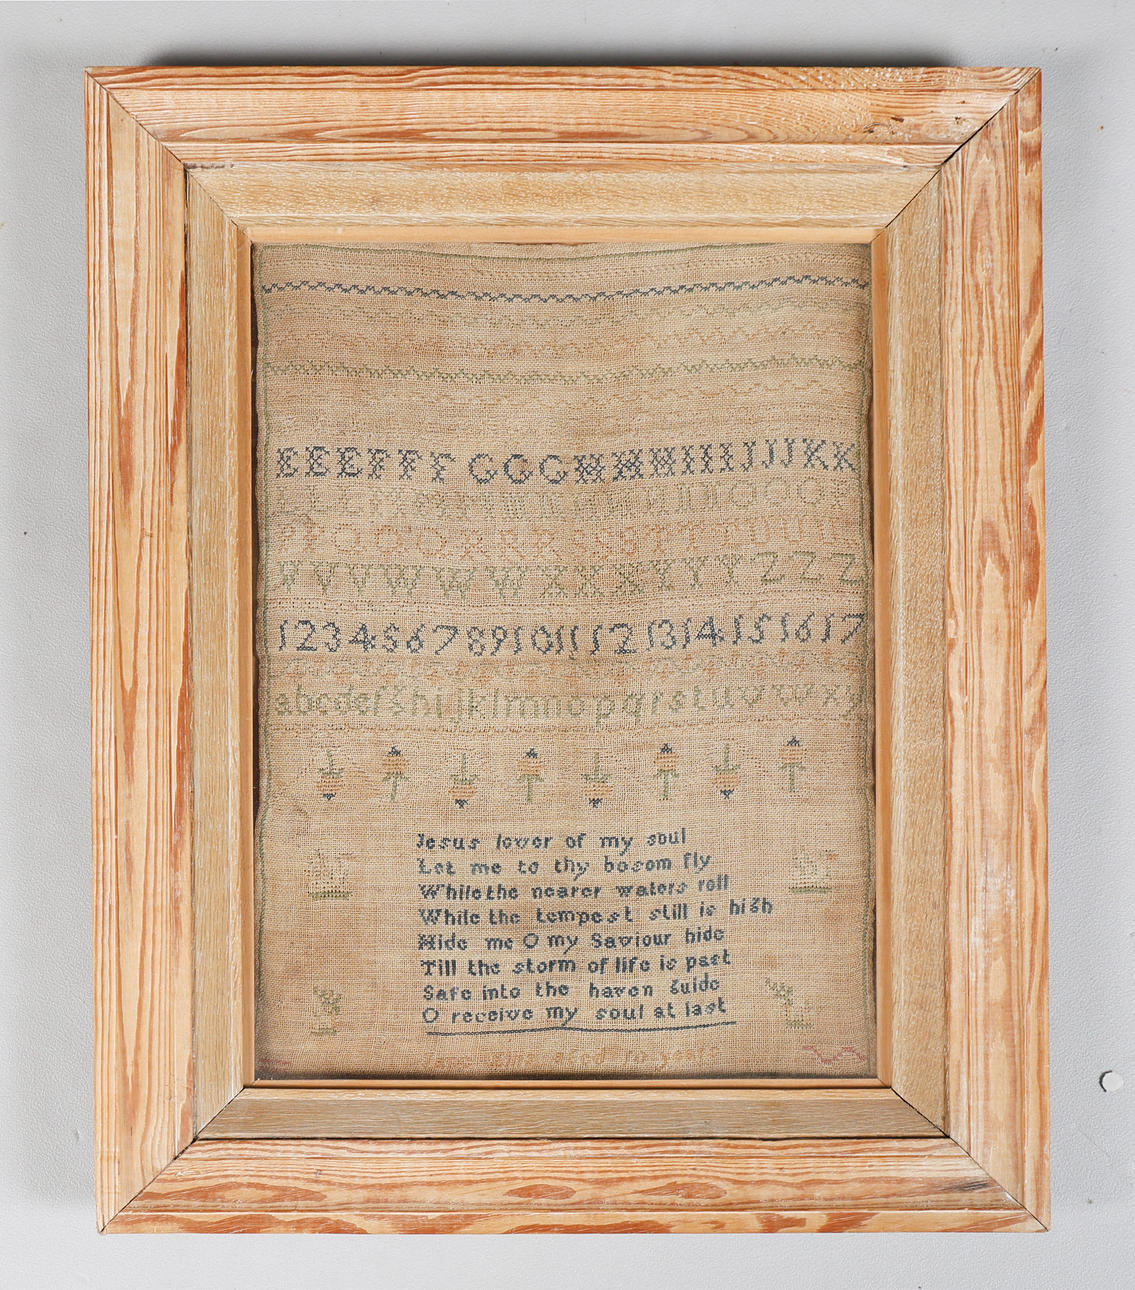 E E E F F F G G G H H H I I I J J J K K
O O O
P P Q Q Q R R R S S S T T T U U U
V V V W W W X X X Y Y Y Z Z Z
1 2 3 4 5 6 7 8 9 10 11 12 13 14 15 16 17
a b c d e f g h i j k l m n o p q r s t u v w x y
Jesus lover of my soul
Let me to thy bosom fly
While the nearer waters roll
While the tempest still is high
Hide me O my Saviour hide
Till the storm of life is past
Safe into the haven guide
O receive my soul at last
Jane aged 10 years